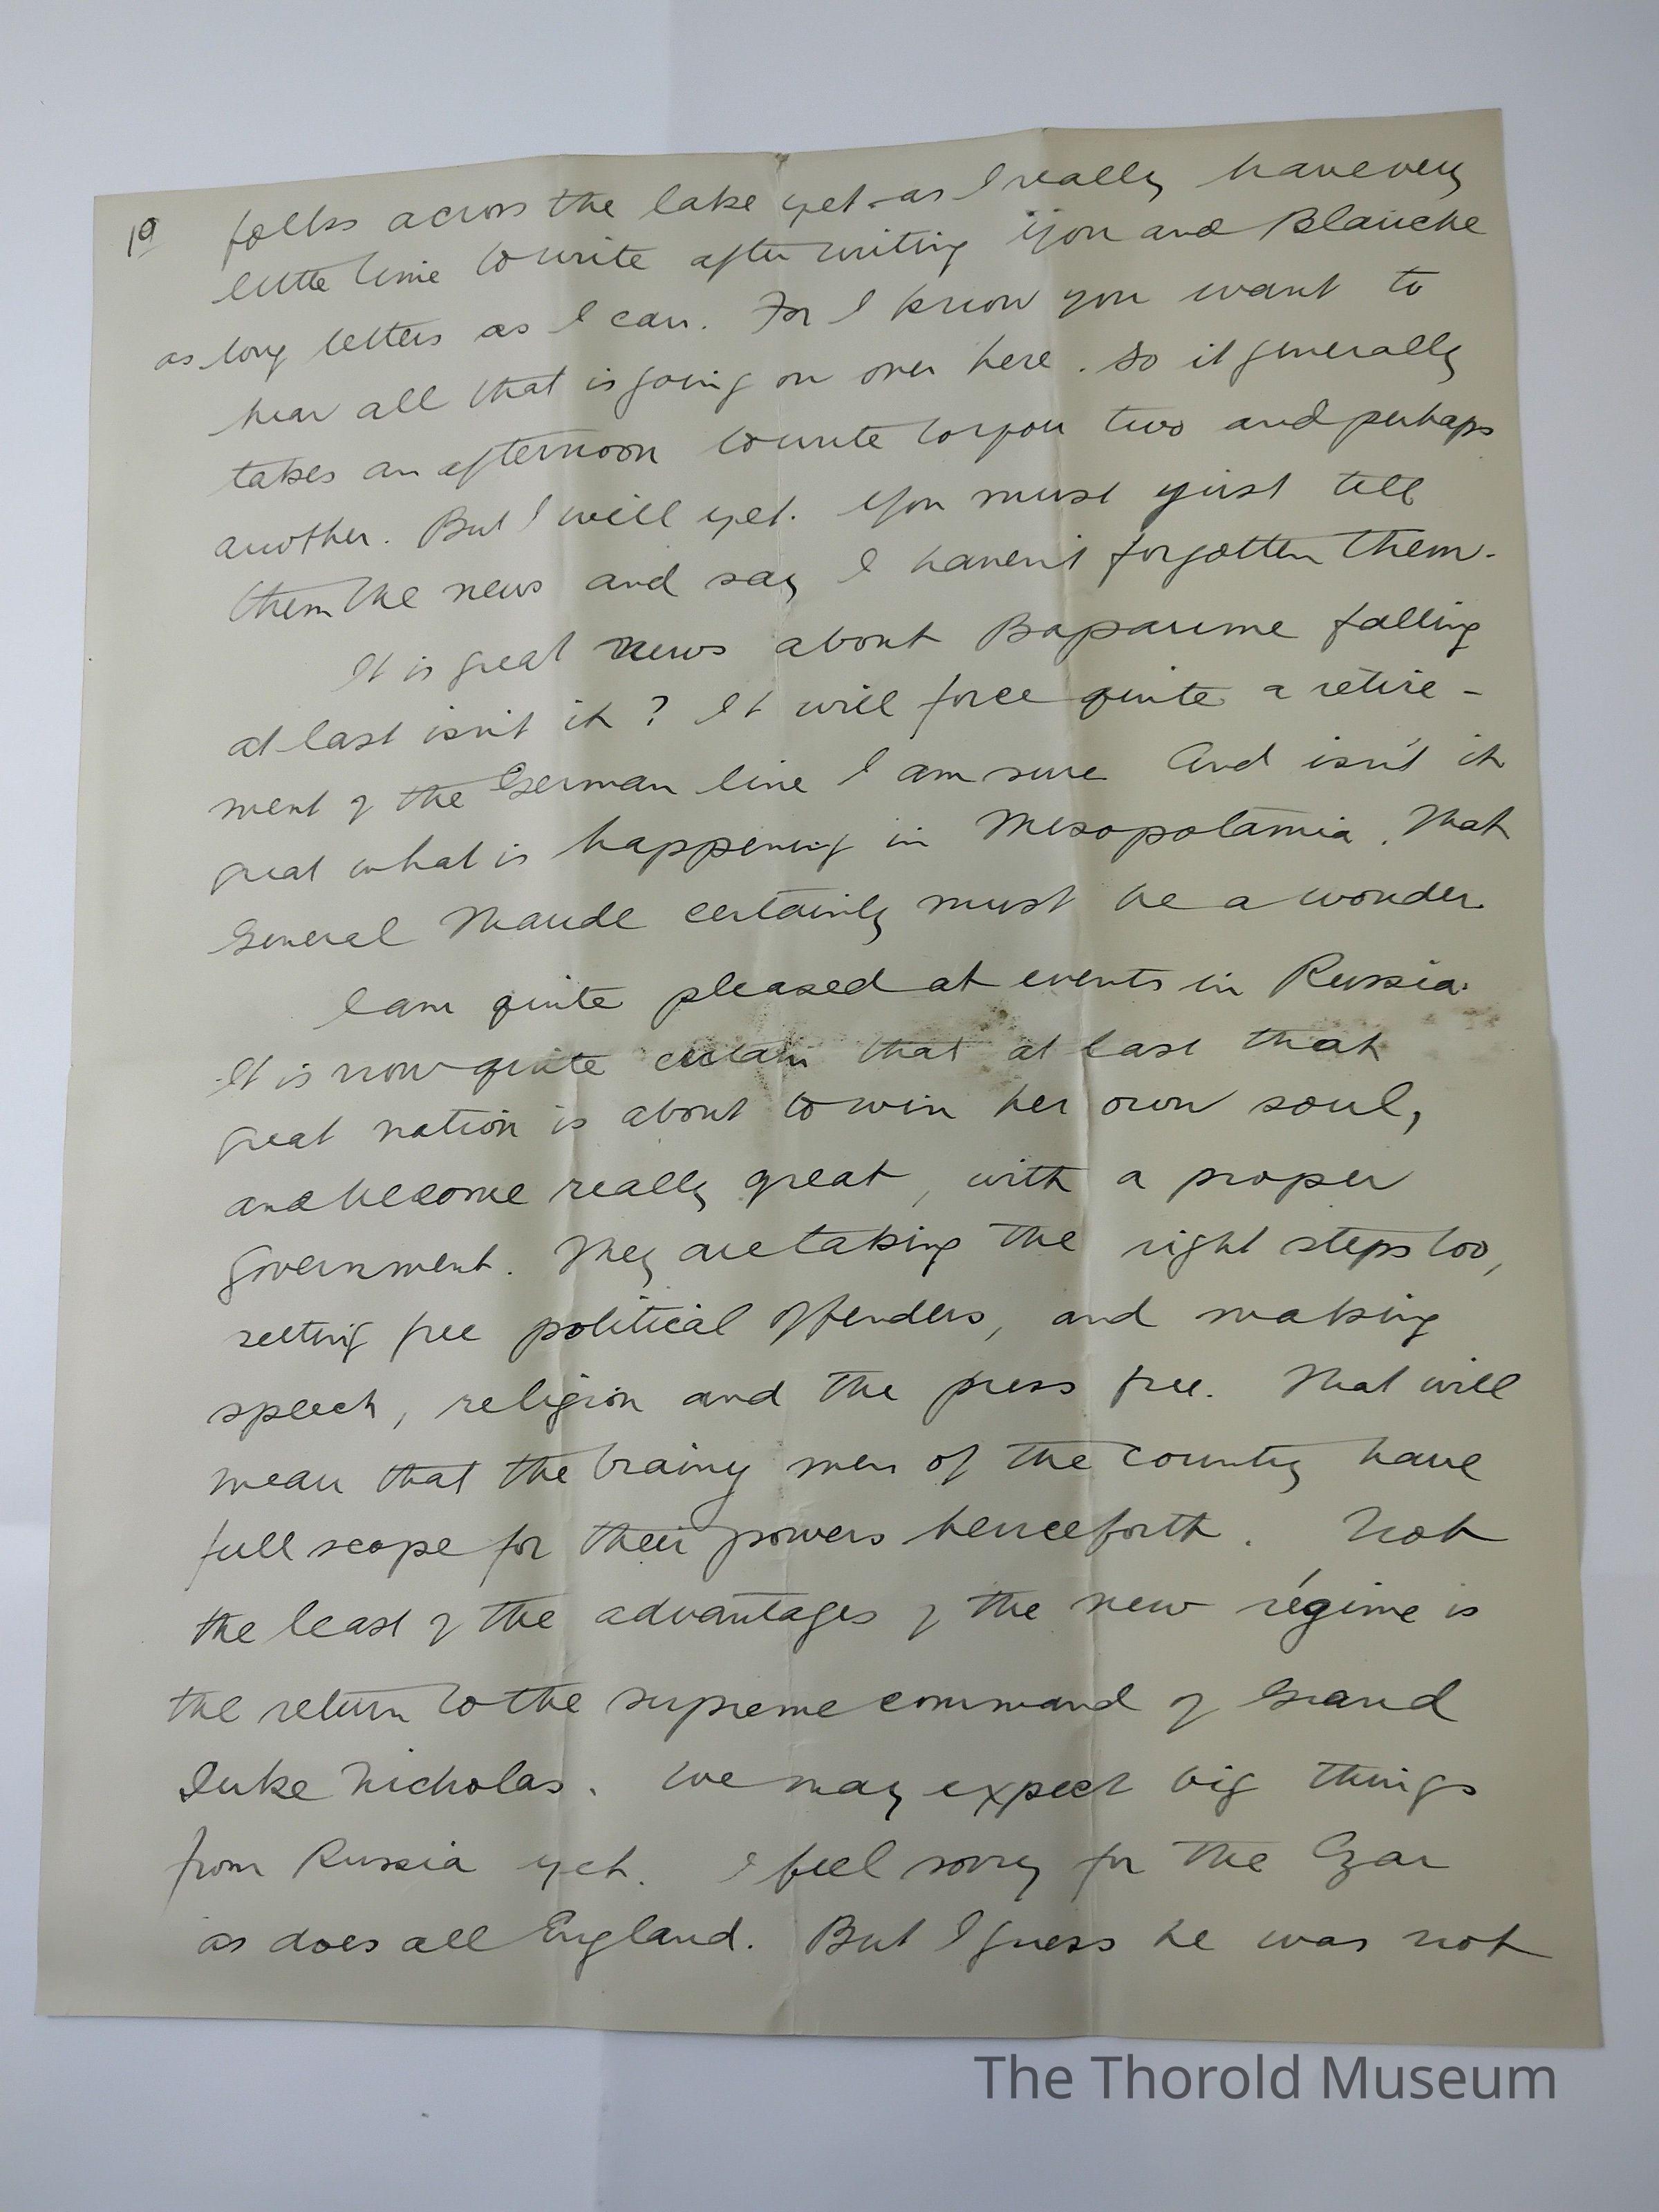 10 folks across the lake yet - as I really have very
little time to write after writing you and Blanche
as long letters as I can. For I know you want to
hear all that is going on over here. So it generally
takes an afternoon to write to you two and perhaps
another. But I will yet. You must just tell
them the news and say I haven't forgotten them.
It is great news about Bapaume falling
at last isn't it? It will force quite a retire-
ment of the German line I am sure And isn't it
great what is happening in Mesopotamia. That
General Maude certainly must be a wonder.
I am quite pleased at events in Russia.
It is now quite certain that at last that
great nation is about to win her own soul,
and become really great, with a proper
government. They are taking the right steps too,
setting free political offenders, and making
speech, religion and the press free. That will
mean that the brainy men of the country have
full scope for their powers henceforth. Not
the least of the advantages of the new régime is
the return to the supreme command of Grand
Duke Nicholas. We may expect big things
from Russia yet. I feel sorry for the Czar
as does all England. But I guess he was not
The Thorold Museum